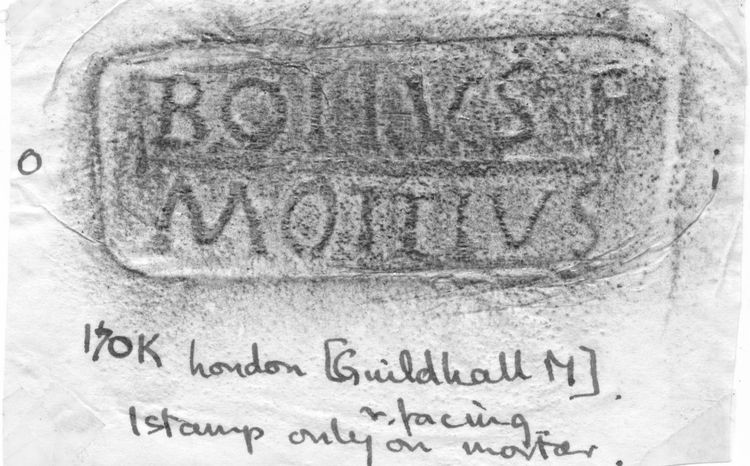 BOIIVS F
MOIIIVS
O
170K London [Guildhall M].
1 stamp only r. facing on mortar.